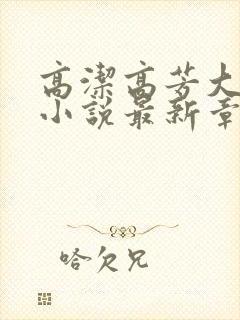 高潔高芳大
小說最新章
哈欠兄